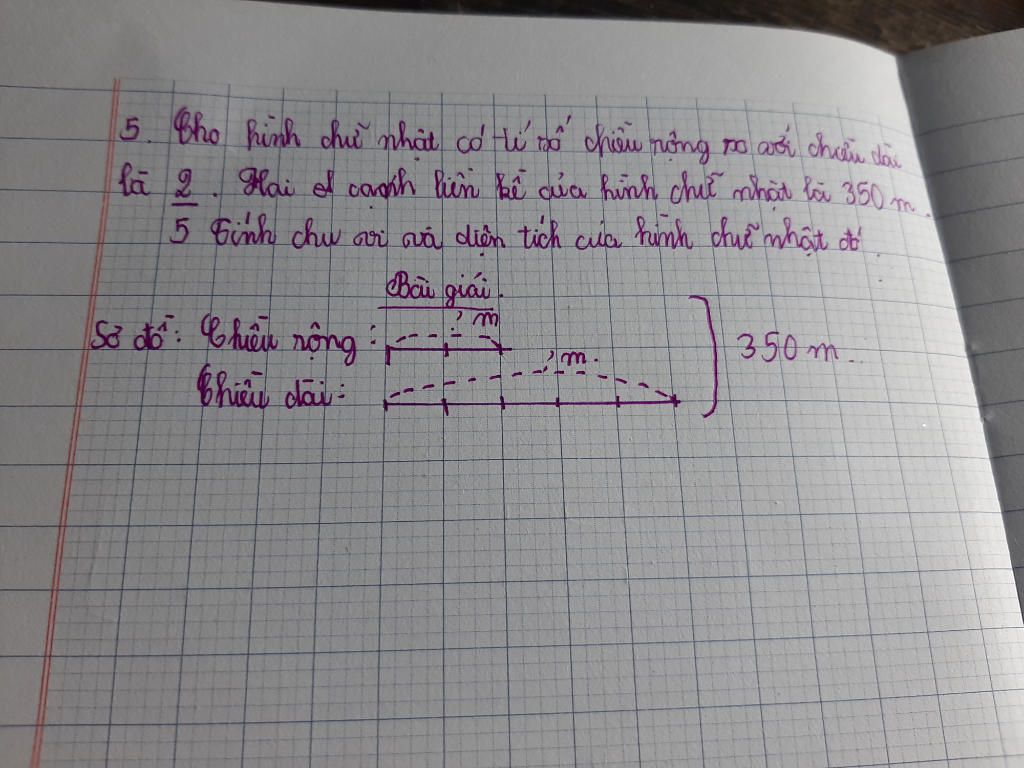 5. Cho hình chữ nhật có tỉ số chiều rộng so với chiều dài
là 2/5. Hai cạnh liên kế của hình chữ nhật là 350 m.
Tính chu vi và diện tích của hình chữ nhật đó
Bài giải.
Sơ đồ: Chiều rộng: ? m
Chiều dài: ? m.
350 m.